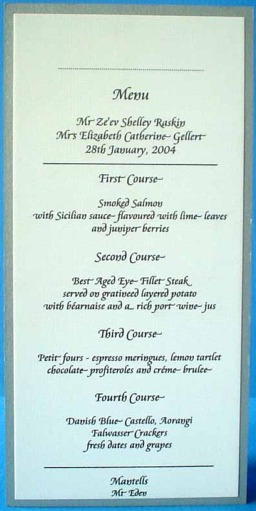 Menu
Mr Ze'ev Shelley Raskin
Mrs Elizabeth Catherine Gellert
28th January, 2004
First Course
Smoked Salmon
with Sicilian sauce flavoured with lime leaves
and juniper berries
Second Course
Best Aged Eye Fillet Steak
served on gratineed layered potato
with béarnaise and a rich port wine jus
Third Course
Petit fours - espresso meringues, lemon tartlet
chocolate profiteroles and créme brulee
Fourth Course
Danish Blue Castello, Aorangi
Falwasser Crackers
fresh dates and grapes
Mantells
Mt Eden